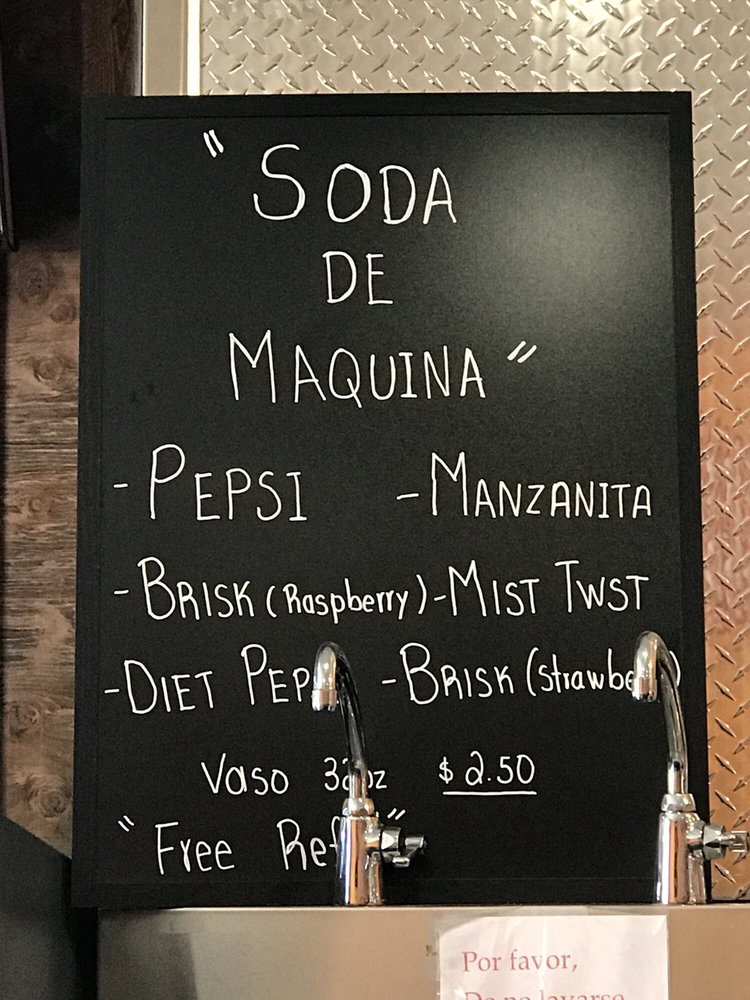 "SODA
DE
MAQUINA"
-PEPSI -MANZANITA
-BRISK (Raspberry) -MIST TWST
-DIET -BRISK
Vaso $2.50
"Free
Por favor,